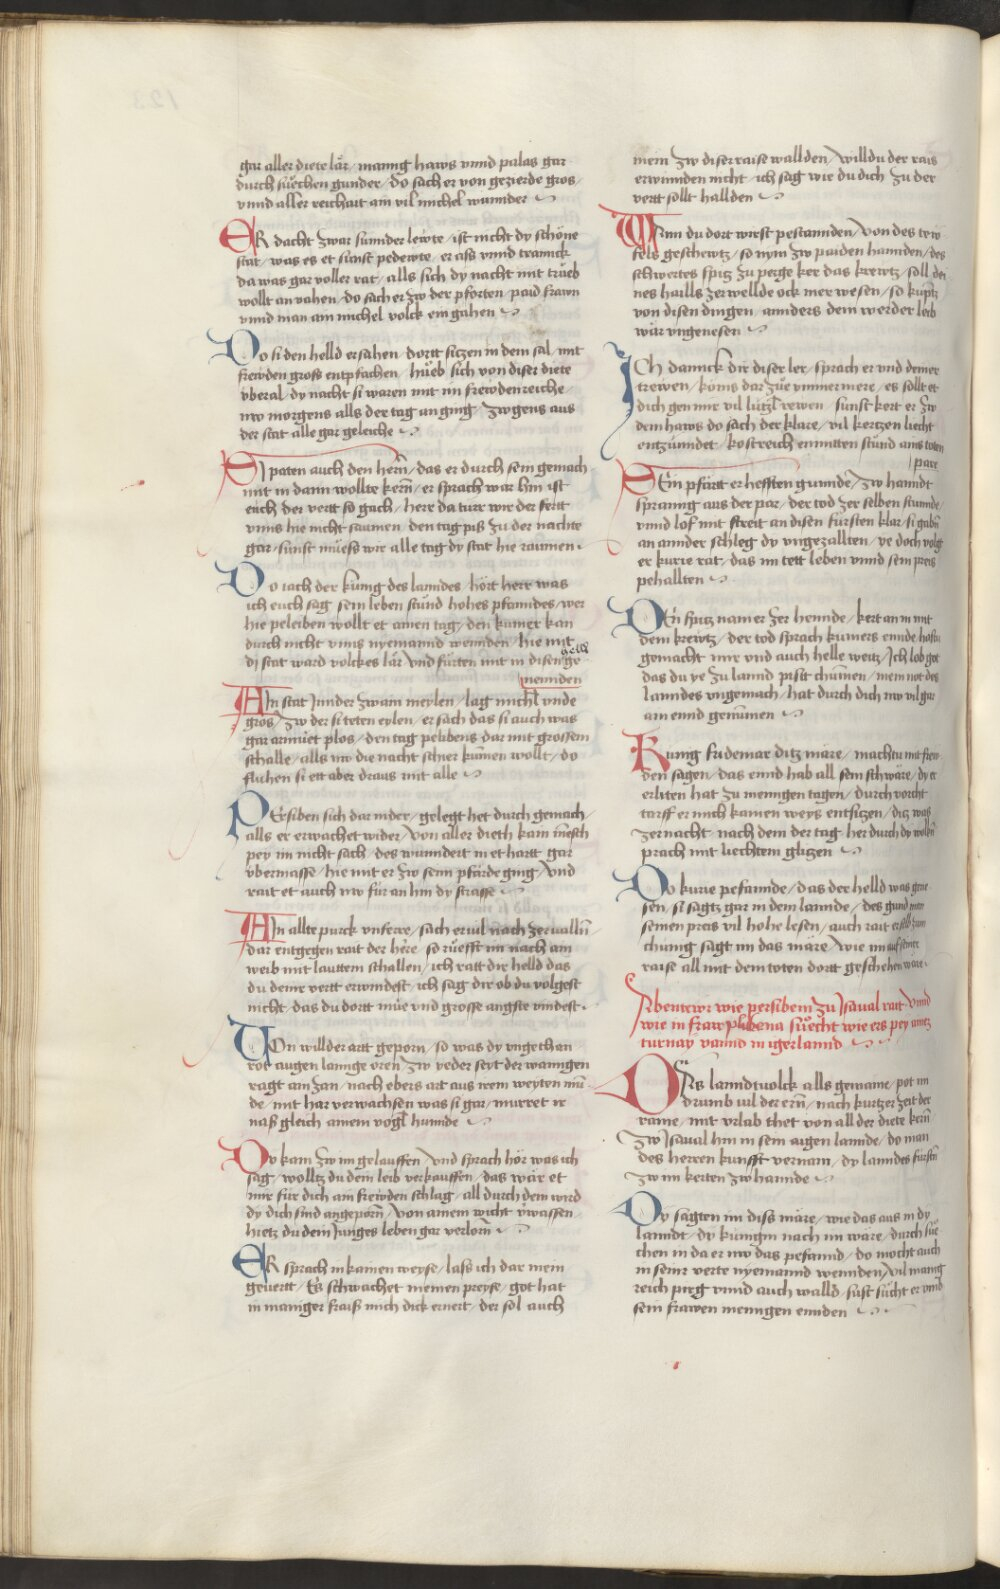 gar aller diete lär / manig haws vnnd palas gar
durch süechen gunder / do sach er von gezierde gros /
vnnd aller reichait ain vil michel wunnder
ER dacht zwar sunnder lewte / ist nicht dy schöne
stat / was es et sunst pedewte / er ass vnnd trannck
da was gar voller rat / alls sich dy nacht mit trüeb
wollt an vahen / do sach er zw der pforten / paid frawn
vnnd man ain michel volck ein gahen
Do si den helld ersahen / dortt sitzen in dem sal / mit
frewden gross entpfachen / hüeb sich von diser diete
vberal / dy nacht si waren mit im frewdenreiche /
nw morgens alls der tag an ging / zwgens aus
der stat alle gar geleiche
SI paten auch den herrn / das er durch sein gemach
mit in dann wollte kern / er sprach war hin ist
euch der vertt so gach / herr da turr wir der fertt
vnns hie nicht saumen / den tag piß zu der nachte
gar / sunst müess wir alle tag dy stat hie raumen
Do iach der künig des lanndes / hört herr was
ich euch sag / sein leben stünd hohes pfanndes / wer
hie peleiben wollt et ainen tag / den kumer kan
durch nicht vnns nyemannd wennden / hie mit
dy stat ward volckes lär / vnd fürten mit in disen ge
nennden
AIn stat Innder zwain meylen / lag michl vnde
gros / zw der si teten eylen / er sach das si auch was
gar armüet plos / den tag pelibens dar mit grossem
schalle / alls nw die nacht schier kümen wollt / do
fluhen si ett aber draus mit alle
PErsiben sich dar nider / gelegt het durch gemach /
alls er erwachet wider / von aller dieth kain mensch
pey im nicht sach / des wunndert in et hartt gar
vbermasse / hie mit er zw seim pfärde ging / vnd
rait et auch nw für an hin dy strasse
AIn allte purck vnferre / sach er vil nach zervallen
dar entgegen rait der herre / so rüefft im nach ain
weib mit lauttem schallen / ich ratt dir helld das
du deine vertt erwindest / ich sag dir ob du volgest
nicht / das du dortt müe vnd grosse angste vindest
VOn willder artt geporn / so was dy vngethan
rot augen lannge oren / zw yeder seyt der wanngen
ragt ain zan / nach ebers art aus irem weyten mu
de / mit har verwachsen was si gar / murret ir
naß gleich ainem vogl hunnde
Dy kam zw im gelauffen / vnd sprach hör was ich
sag / wolltz du dein leib verkauffen / das wär et
mir für dich ain frewden schlag / all durch dein wird
dy dich sind angeporn / von ainem wicht
hietz du dein Junges leben gar verlorn
ER sprach in kainen weyse / lass ich dar mein
gevertt / Es schwachet meinen preyse / got hat
in maniger fraiß mich dick ernert / der sol auch
mein zw diser raise wallden / willdu der rais
erwinnden nicht / ich sag wie du dich zu der
vertt sollt hallden
WAnn du dort wirst pestannden / von des tew
fels geschewtz / so nym zw paiden hannden / des
schwertes spitz zu perge ker das krewtz / soll dei
nes haills zerwellde ock mer wesen / so
von disen dingen / annders dein werder leib
wär vngenesen
ICh dannck dir diser ler / sprach er vnd deiner
trewen / köms dar züe ymmermere / es sollt et
dich gen mir vil lützl rewen / sunst kert er zw
dem haws do sach der klare / vil kertzen liecht
entzünndet / kostreich enmitten stünd ains toten
pare
SEin pfärtt er hefften gunnde / zw hanndt
sprannng aus der par / der tod zer selben stunnde
vnnd lof mit streit an disen fürsten klar / si gaben
an annder schleg dy vngezallten / ye doch volgt
er kurie rat / das im tett leben vnnd sein preis
pehallten
DEn spitz nam er zer hennde / kert an in mit
dem krewtz / der tod sprach kumers ennde hastu
gemacht mir vnd auch helle weitz / Ich lob got
das du ye zu lannd pisst chümen / mein not des
lanndes vngemach / hat durch dich nw vil gar
ain ennd genümen
Kunig fridemar ditz märe / machtu mit frew
den sagen / das ennd hab all sein schwäre / dy er
erliten hat zu mennigen tagen / durch vorcht
tarff er mich kainen weys entsitzen / ditz was
zernacht nach dem der tag / her durch dy wolken
prach mit liechtem glitzen
Do kurie pefannde / das der helld was gene
sen / si sagtz gar in dem lannde / des gund man
seinen preis vil hohe lesen / auch rait er selb zum
chunig sagt im das märe / wie im auf seiner
raise all mit dem toten dortt geschehen wäre
Abentewr wie persibein zu Isaual ratt vnnd
wie in fraw plibena suecht wie ers pey ainez
turnay vannd in igerlannd
DAs lanndtuolck alls gemaine / pot im
drumb vil der ern / nach kurtzer zeit der
raine / mit vrlab thet von all der diete kern
zw Isaual hin in sein aigen lannde / do man
des herren kunfft vernam / dy lanndes fürsten
zw im kerten zw hannde
Dy sagten im diss märe / wie das aus in dy
lanndt / dy künigin nach im wäre / durch süe
chen in da er nw das pefannd / do mocht auch
in seiner verte nyemannd wennden / vil manig
reich pirg vnnd auch walld / sust sücht er vnd
sein frawen mennigen ennden